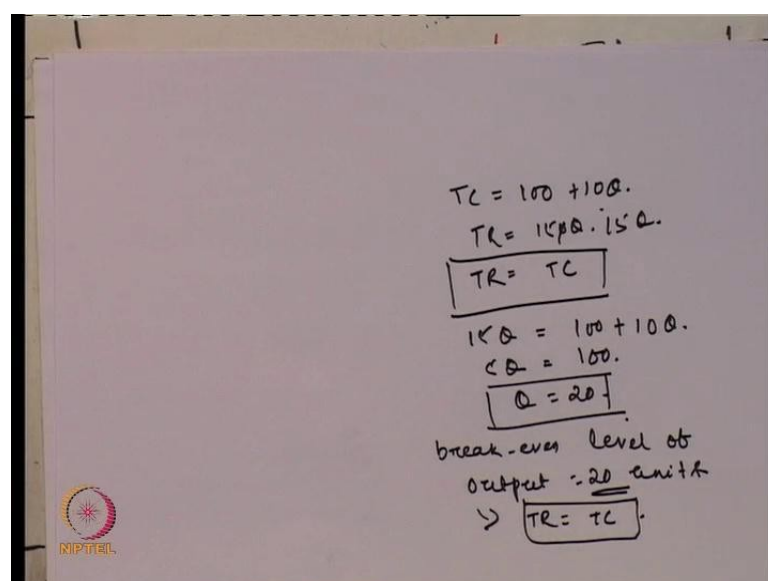 TC = 100 + 10Q.
TR = 15pQ. 15Q.
TR = TC
15Q = 100 + 10Q.
5Q = 100.
Q = 20.
break-even level of
output = 20 units
TR = TC.
NPTEL